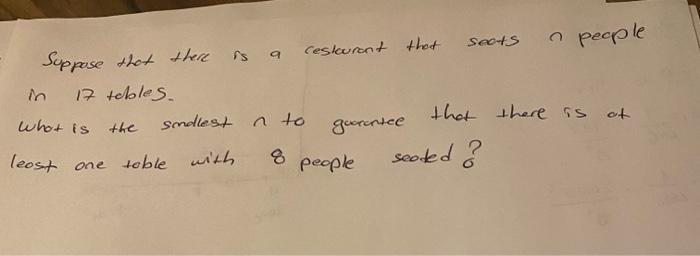 Suppose that there is a restaurant that seats n people
in 17 tables.
What is the smallest n to guarantee that there is at
least one table with 8 people seated?